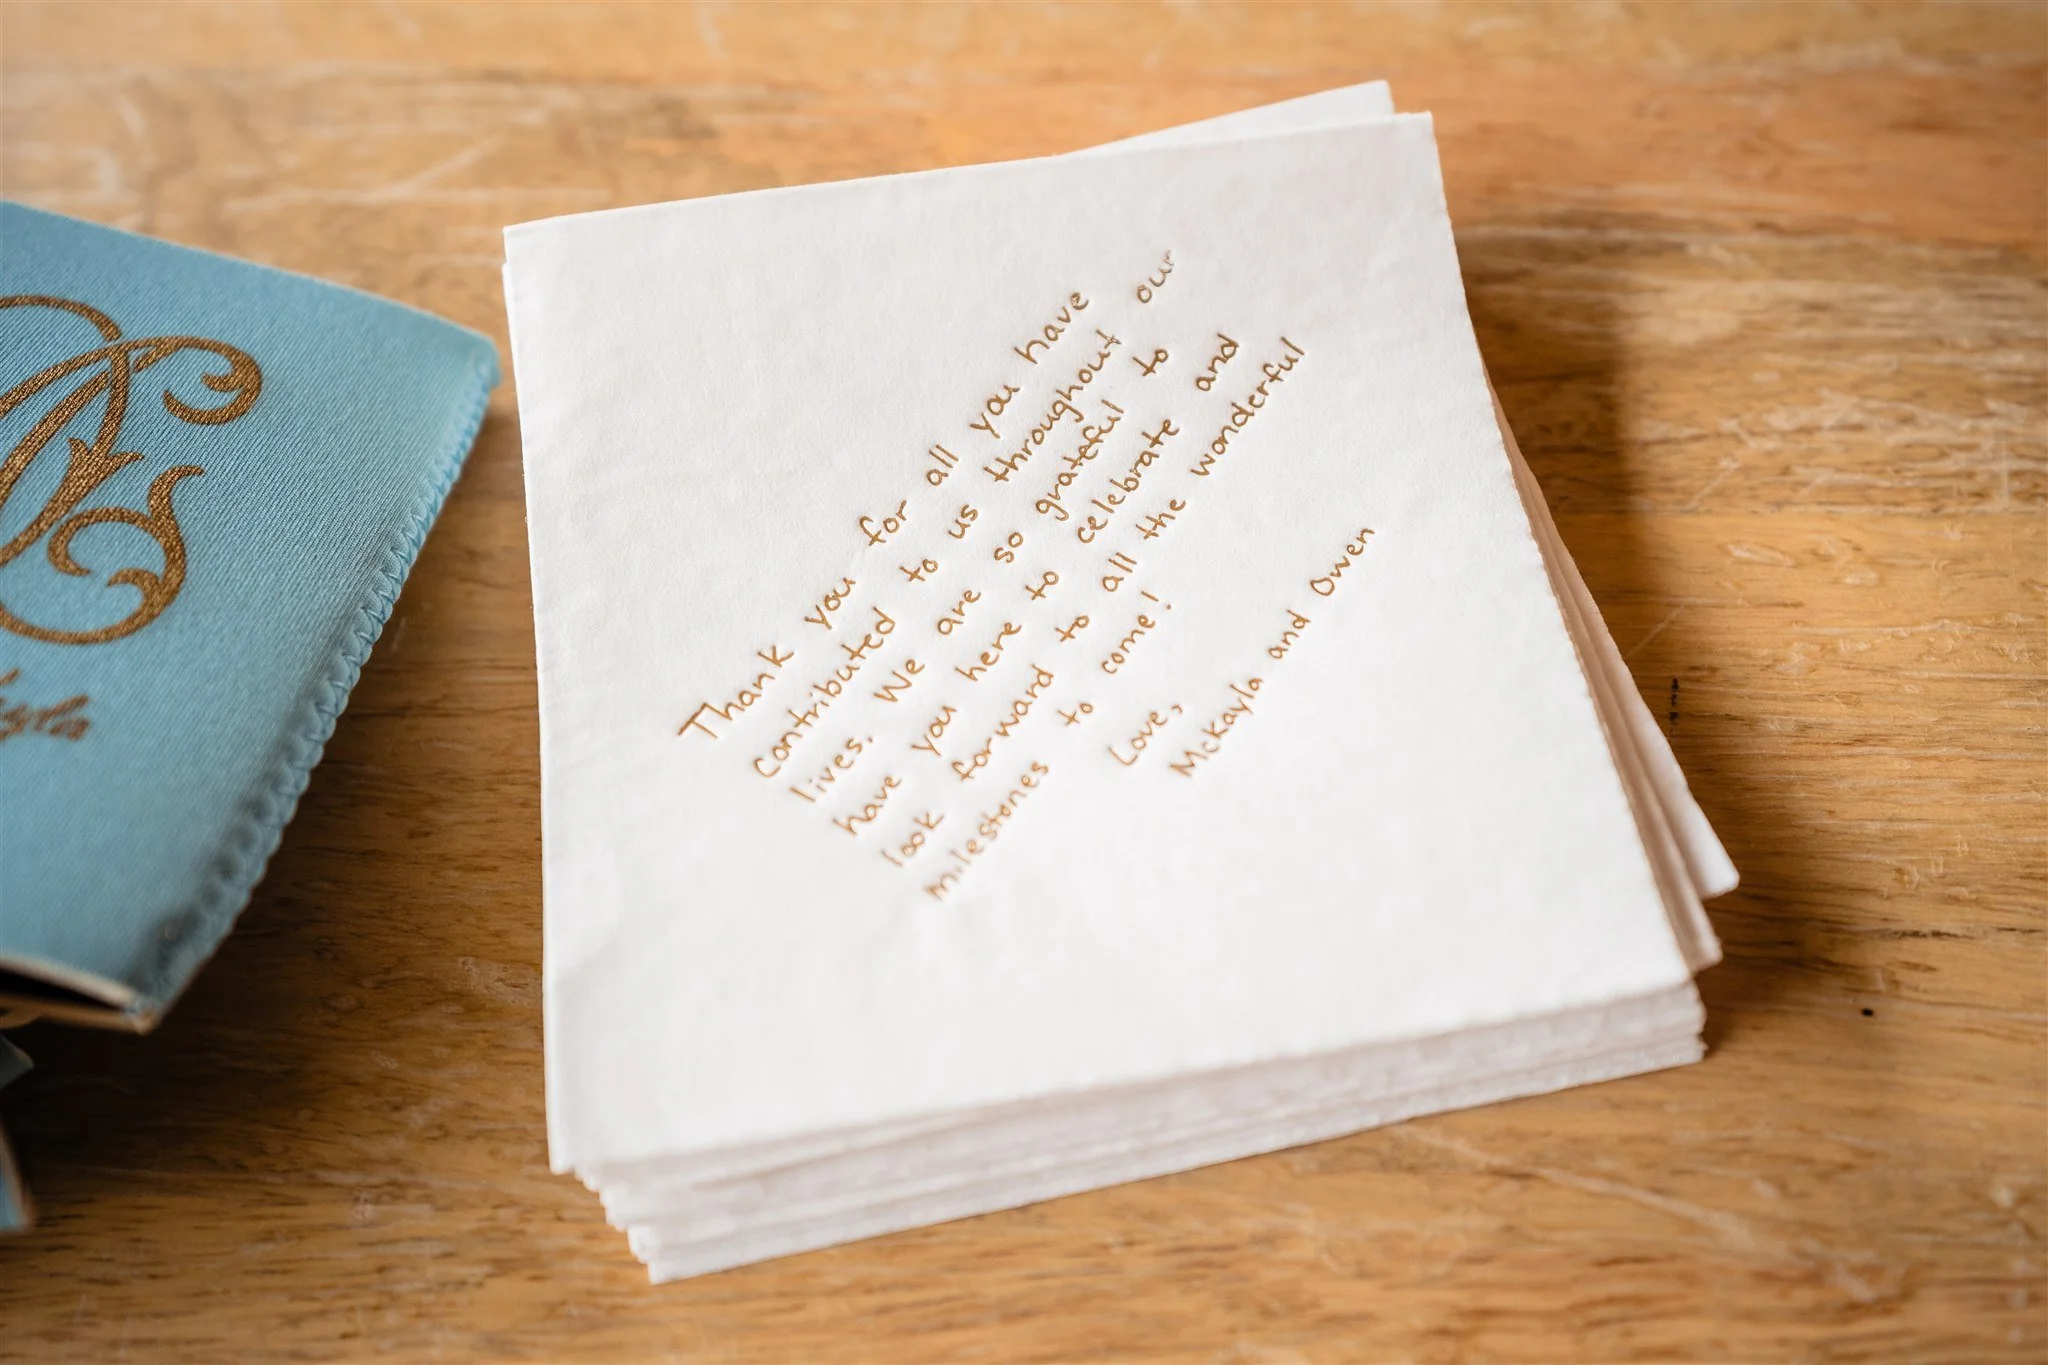 Thank you for all you have
contributed to us throughout our
lives. We are so grateful to
have you here to celebrate and
look forward to all the wonderful
milestones to come!
Love,
McKayla and Owen